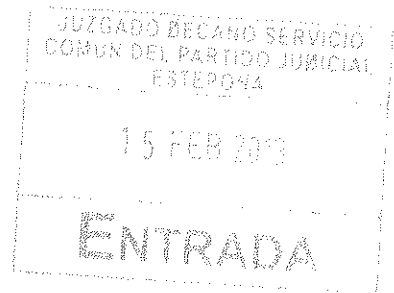 JUZGADO DECANO SERVICIO
COMUN DEL PARTIDO JUDICIAL
ESTEPONA
15 FEB 2013
ENTRADA